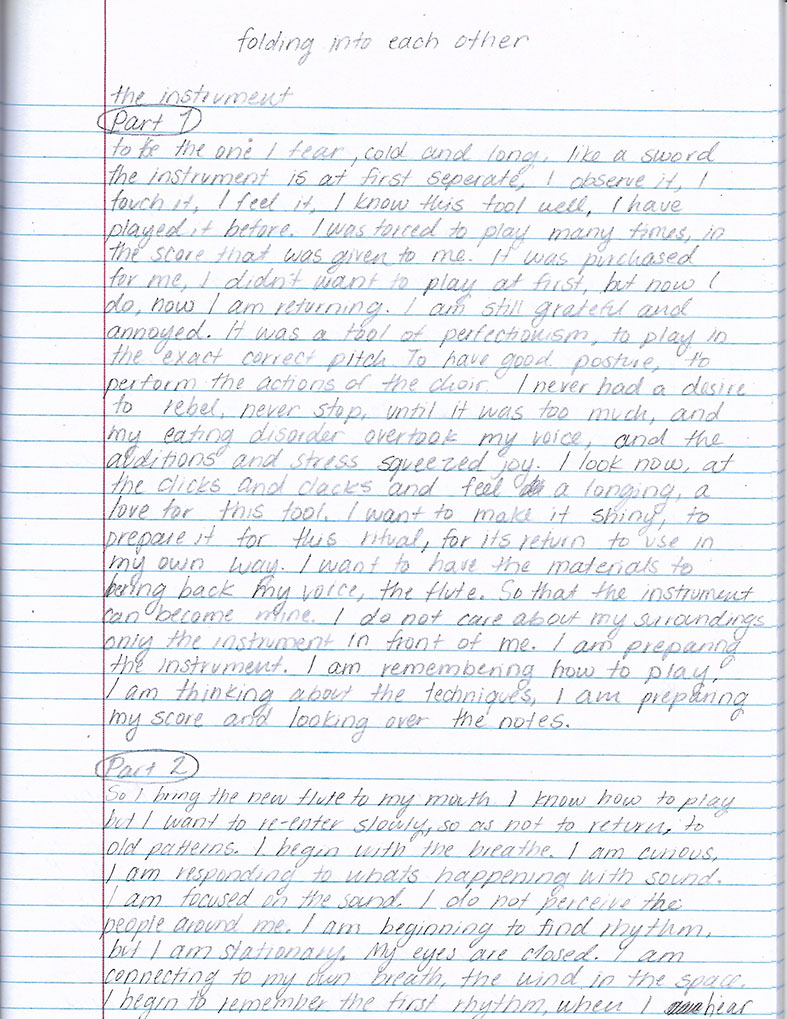 folding into each other
the instrument
Part 1
to be the one I fear, cold and long, like a sword
the instrument is at first seperate, I observe it, I
touch it, I feel it, I know this tool well, I have
played it before. I was forced to play many times, in
the score that was given to me. It was purchased
for me, I didn't want to play at first, but now I
do, now I am returning. I am still grateful and
annoyed. It was a tool of perfectionism, to play in
the exact correct pitch. To have good posture, to
perform the actions of the choir. I never had a desire
to rebel, never stop, until it was too much, and
my eating disorder overtook my voice, and the
auditions and stress squeezed joy. I look now, at
the clicks and clacks and feel a longing, a
love for this tool. I want to make it shiny, to
prepare it for this ritual, for its return to use in
my own way. I want to have the materials to
bring back my voice, the flute. So that the instrument
can become mine. I do not care about my surroundings
only the instrument in front of me. I am preparing
the instrument. I am remembering how to play,
I am thinking about the techniques, I am preparing
my score and looking over the notes.
Part 2
So I bring the new flute to my mouth I know how to play
but I want to re-enter slowly, so as not to return, to
old patterns. I begin with the breathe. I am curious,
I am responding to whats happening with sound.
I am focused on the sound. I do not perceive the
people around me. I am beginning to find rhythm,
but I am stationary. My eyes are closed. I am
connecting to my own breath, the wind in the space.
I begin to remember the first rhythm, when I hear